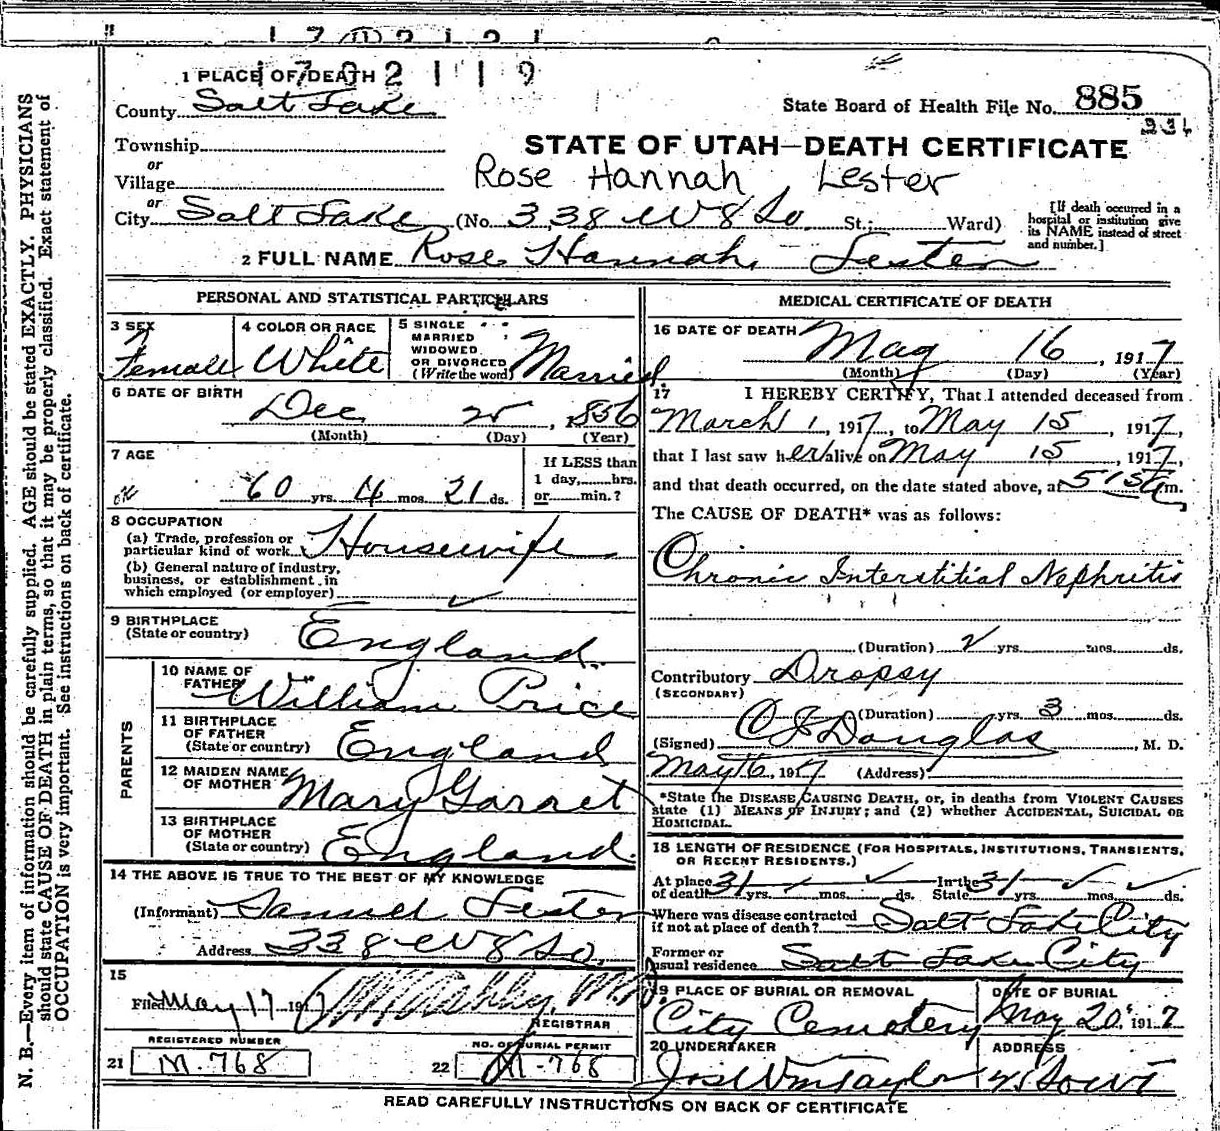 1702119
1 PLACE OF DEATH
County Salt Lake
State Board of Health File No. 885
Township
or
Village
or
STATE OF UTAH—DEATH CERTIFICATE
Rose Hannah Lester
City Salt Lake (No. 338 W 8 So St.; Ward)
[If death occurred in a hospital or institution give its NAME instead of street and number.]
2 FULL NAME Rose Hannah Lester
PERSONAL AND STATISTICAL PARTICULARS
3 SEX Female
4 COLOR OR RACE White
5 SINGLE MARRIED WIDOWED OR DIVORCED (Write the word) Married
6 DATE OF BIRTH
Dec 25, 1856
(Month) (Day) (Year)
7 AGE
60 yrs. 4 mos. 21 ds.
If LESS than 1 day,......hrs. or......min.?
8 OCCUPATION
(a) Trade, profession or particular kind of work Housewife
(b) General nature of industry, business, or establishment in which employed (or employer)
9 BIRTHPLACE (State or country) England
PARENTS
10 NAME OF FATHER William Price
11 BIRTHPLACE OF FATHER (State or country) England
12 MAIDEN NAME OF MOTHER Mary Garret
13 BIRTHPLACE OF MOTHER (State or country) England
14 THE ABOVE IS TRUE TO THE BEST OF MY KNOWLEDGE
(Informant) Samuel Lester
Address 338 W 8 So.
15
Filed May 17 1917 M.D.
REGISTRAR
REGISTERED NUMBER
21 M-768
NO. OF BURIAL PERMIT
22 M-768
MEDICAL CERTIFICATE OF DEATH
16 DATE OF DEATH May 16, 1917
(Month) (Day) (Year)
17 I HEREBY CERTIFY, That I attended deceased from
March 1, 1917, to May 15, 1917,
that I last saw her alive on May 15, 1917,
and that death occurred, on the date stated above, at 515 a m.
The CAUSE OF DEATH* was as follows:
Chronic Interstitial Nephritis
(Duration) 2 yrs. mos. ds.
Contributory Dropsy
(SECONDARY)
(Duration) yrs. 3 mos. ds.
(Signed) Douglas, M. D.
May 16, 1917 (Address)
*State the DISEASE CAUSING DEATH, or, in deaths from VIOLENT CAUSES
state (1) MEANS OF INJURY; and (2) whether ACCIDENTAL, SUICIDAL OR
HOMICIDAL.
18 LENGTH OF RESIDENCE (FOR HOSPITALS, INSTITUTIONS, TRANSIENTS,
OR RECENT RESIDENTS.)
At place of death 31 yrs. mos. ds. In the State 31 yrs. mos. ds.
Where was disease contracted if not at place of death? Salt Lake City
Former or usual residence Salt Lake City
19 PLACE OF BURIAL OR REMOVAL
City Cemetery
DATE OF BURIAL
May 20, 1917
20 UNDERTAKER
Jos Wm Taylor
ADDRESS
READ CAREFULLY INSTRUCTIONS ON BACK OF CERTIFICATE
N. B.—Every item of information should be carefully supplied. AGE should be stated EXACTLY. PHYSICIANS
should state CAUSE OF DEATH in plain terms, so that it may be properly classified. Exact statement of
OCCUPATION is very important. See instructions on back of certificate.